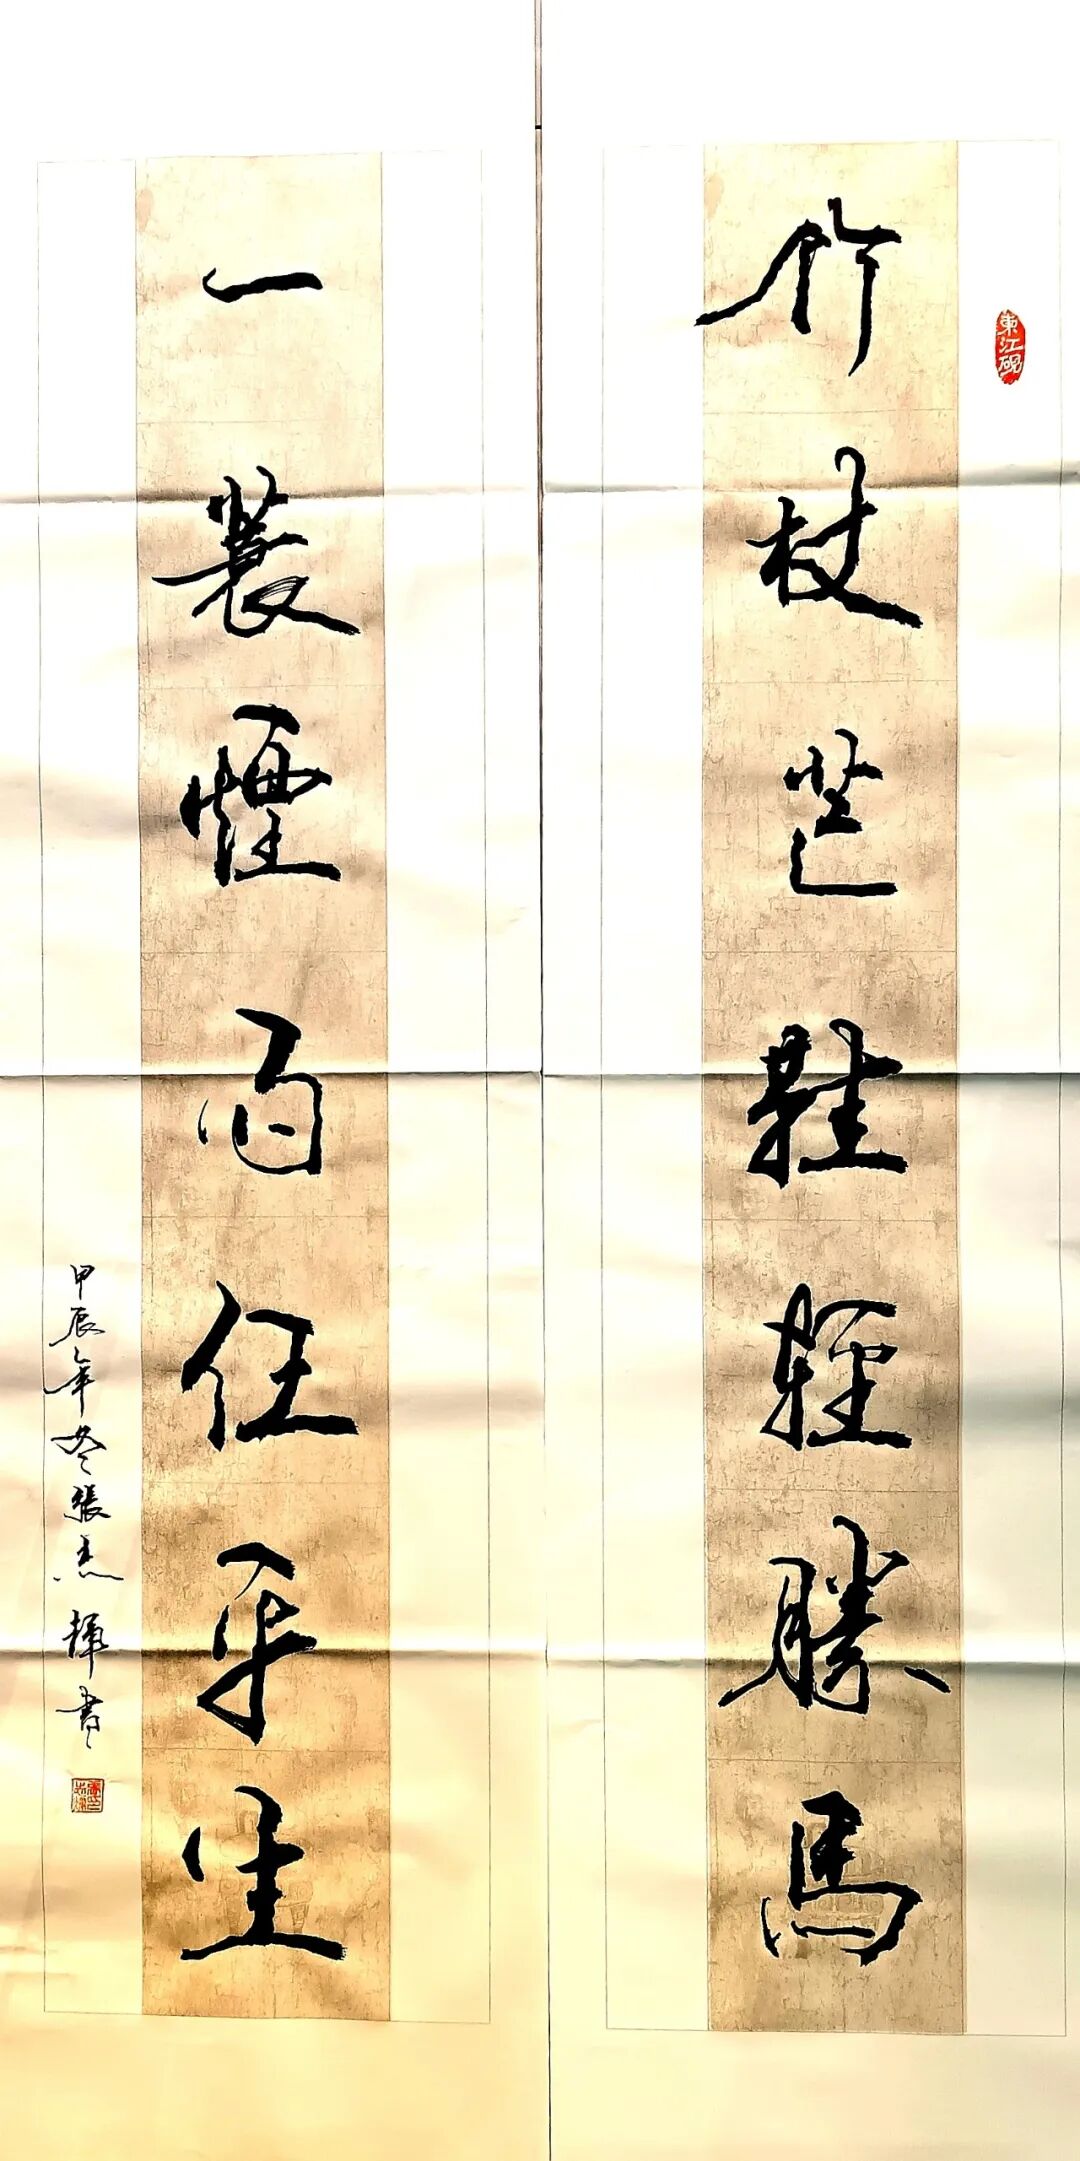 竹杖芒鞋輕勝馬
東江硯
一蓑煙雨任平生
甲辰年冬張杰輝書